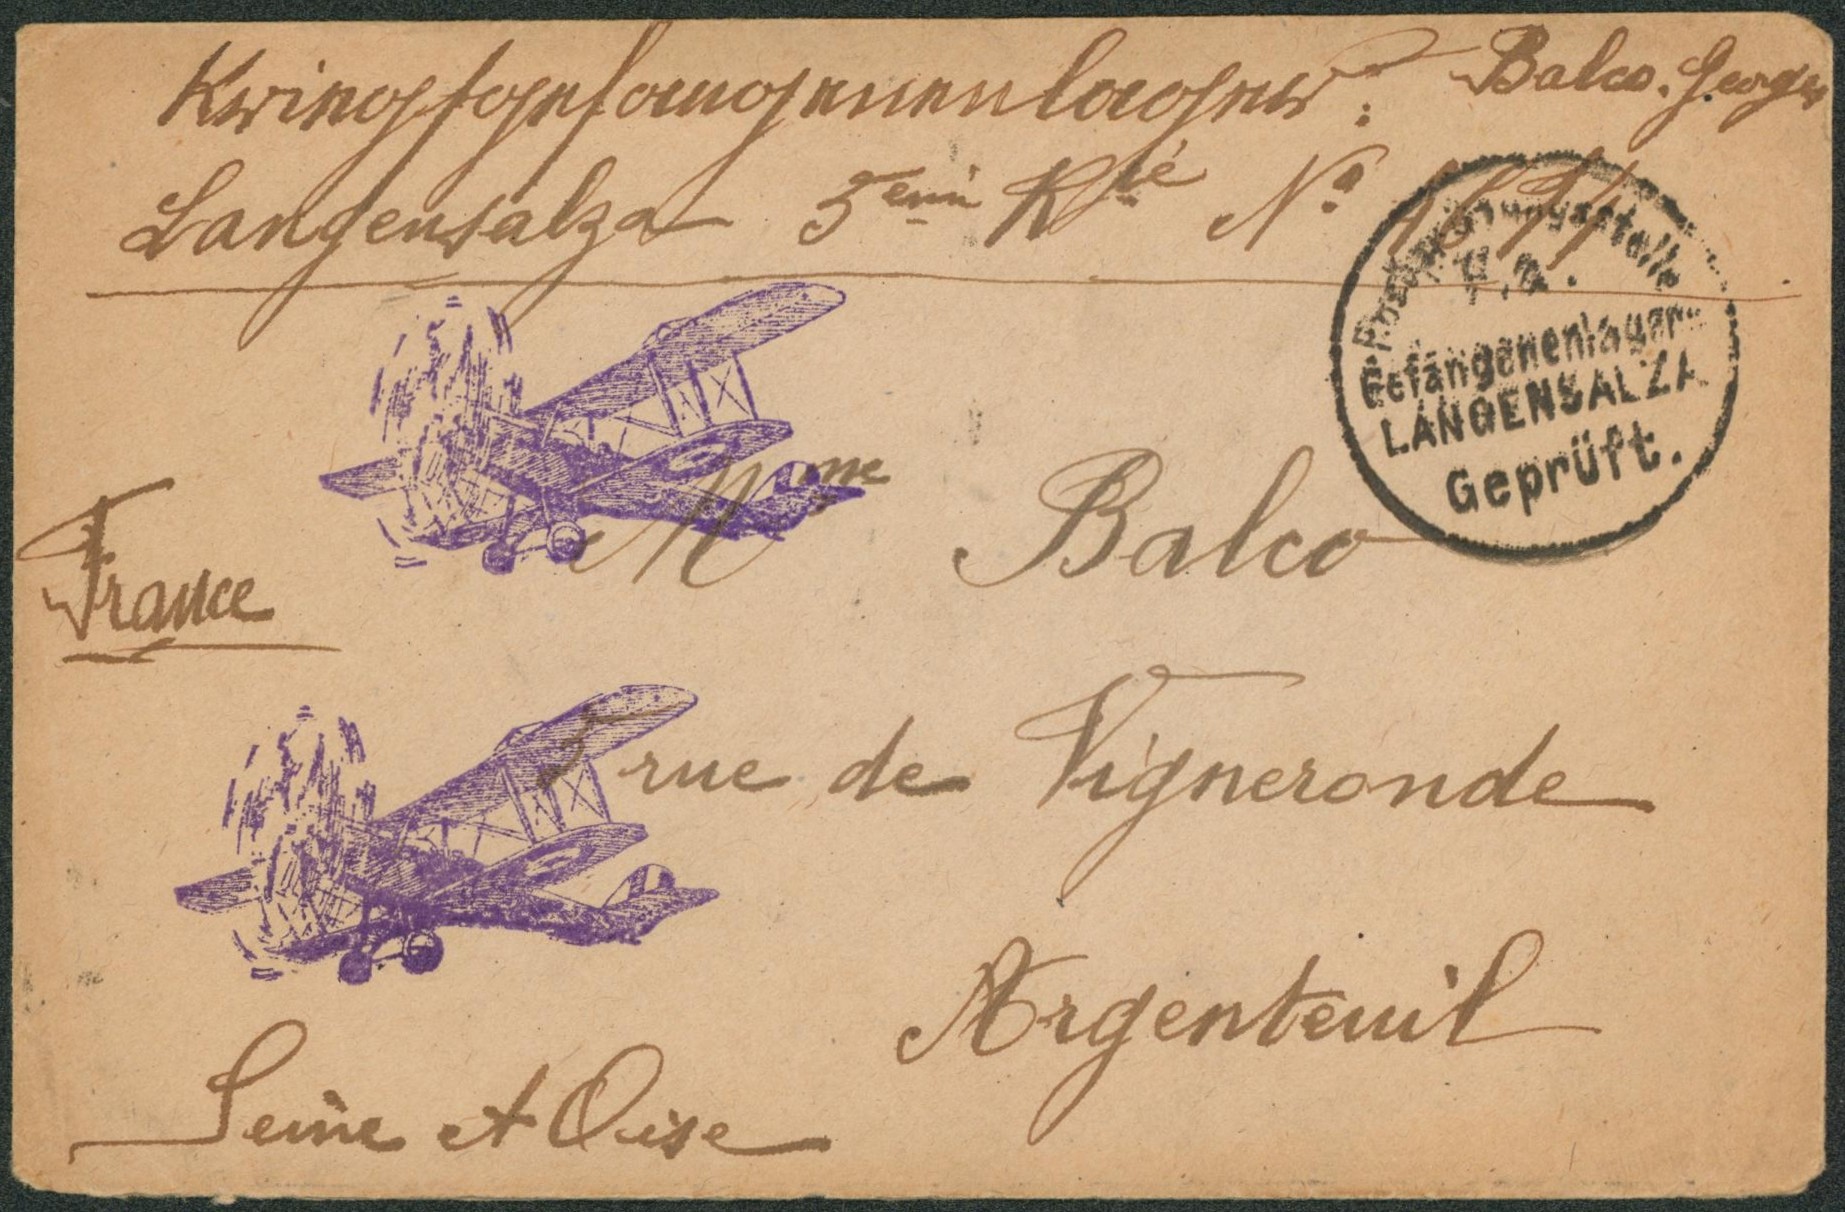 Kringsfgnfangnennlagner: Balco. Georges
Langensalza 5ème Kie No
Postprüfungsstelle
F.a.
Gefangenenlager
LANGENSALZA
Geprüft.
Mme Balco
France
5 rue de Vigneronde
Argenteuil
Seine et Oise